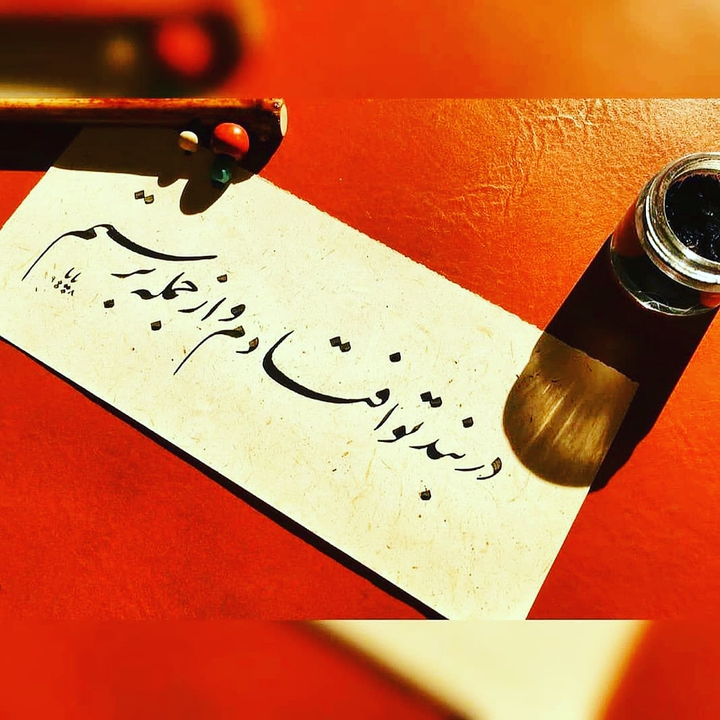 در بند تو افتادم و از جمله برستم